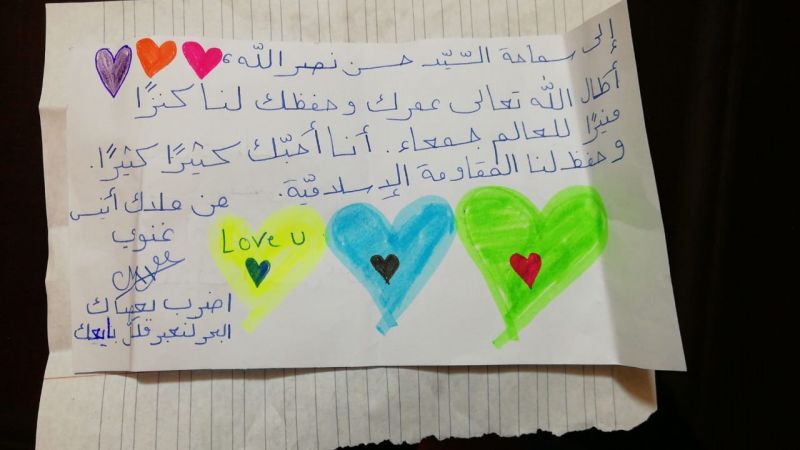 إلى سماحة السّيّد حسن نصر الله،
أطال الله تعالى عمرك وحفظك لنا كنزًا
منيرًا للعالم جمعاء. أنا أحبّك كثيرًا كثيرًا.
وحفظ لنا المقاومة الإسلاميّة.
من ملاك أنيس
غنوي
Love u
اضرب بعصاك
البحر لنعبر فكلّ بايعك